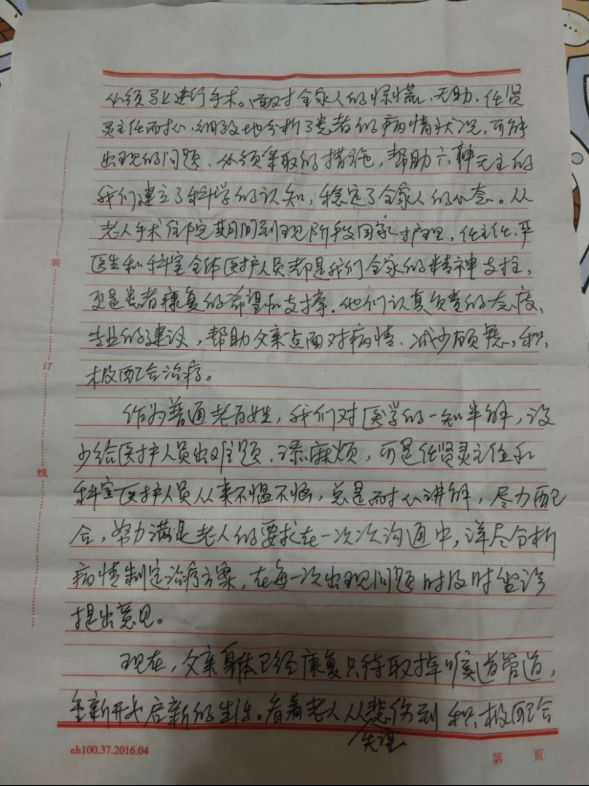 必须马上进行手术。面对全家人的惊慌、无助、任贤
灵主任耐心、细致地分析了患者的病情状况,可能
出现的问题、必须采取的措施,帮助六神无主的
我们建立了科学的认知,稳定了全家人的心态。从
老人手术住院期间到现阶段回家护理,任主任、
医生和科室全体医护人员都是我们全家的精神支柱,
更是患者康复的希望和支撑。他们认真负责的态度、
专业的建议,帮助父亲直面对病情、减少顾虑,积
极配合治疗。
作为普通老百姓,我们对医学的一知半解,没
少给医护人员出难题、添麻烦,可是任贤灵主任和
科室医护人员从来不愠不恼,总是耐心讲解,尽力配
合,努力满足老人的要求在一次次沟通中,详尽分析
病情制定治疗方案,在每一次出现问题时及时坐诊
提出意见。
现在,父亲身体已经康复只待取掉喉道管道,
重新开始启新的生活。看着老人从悲伤到积极配合
失望
装
订
线
ch100.37.2016.04
第 页